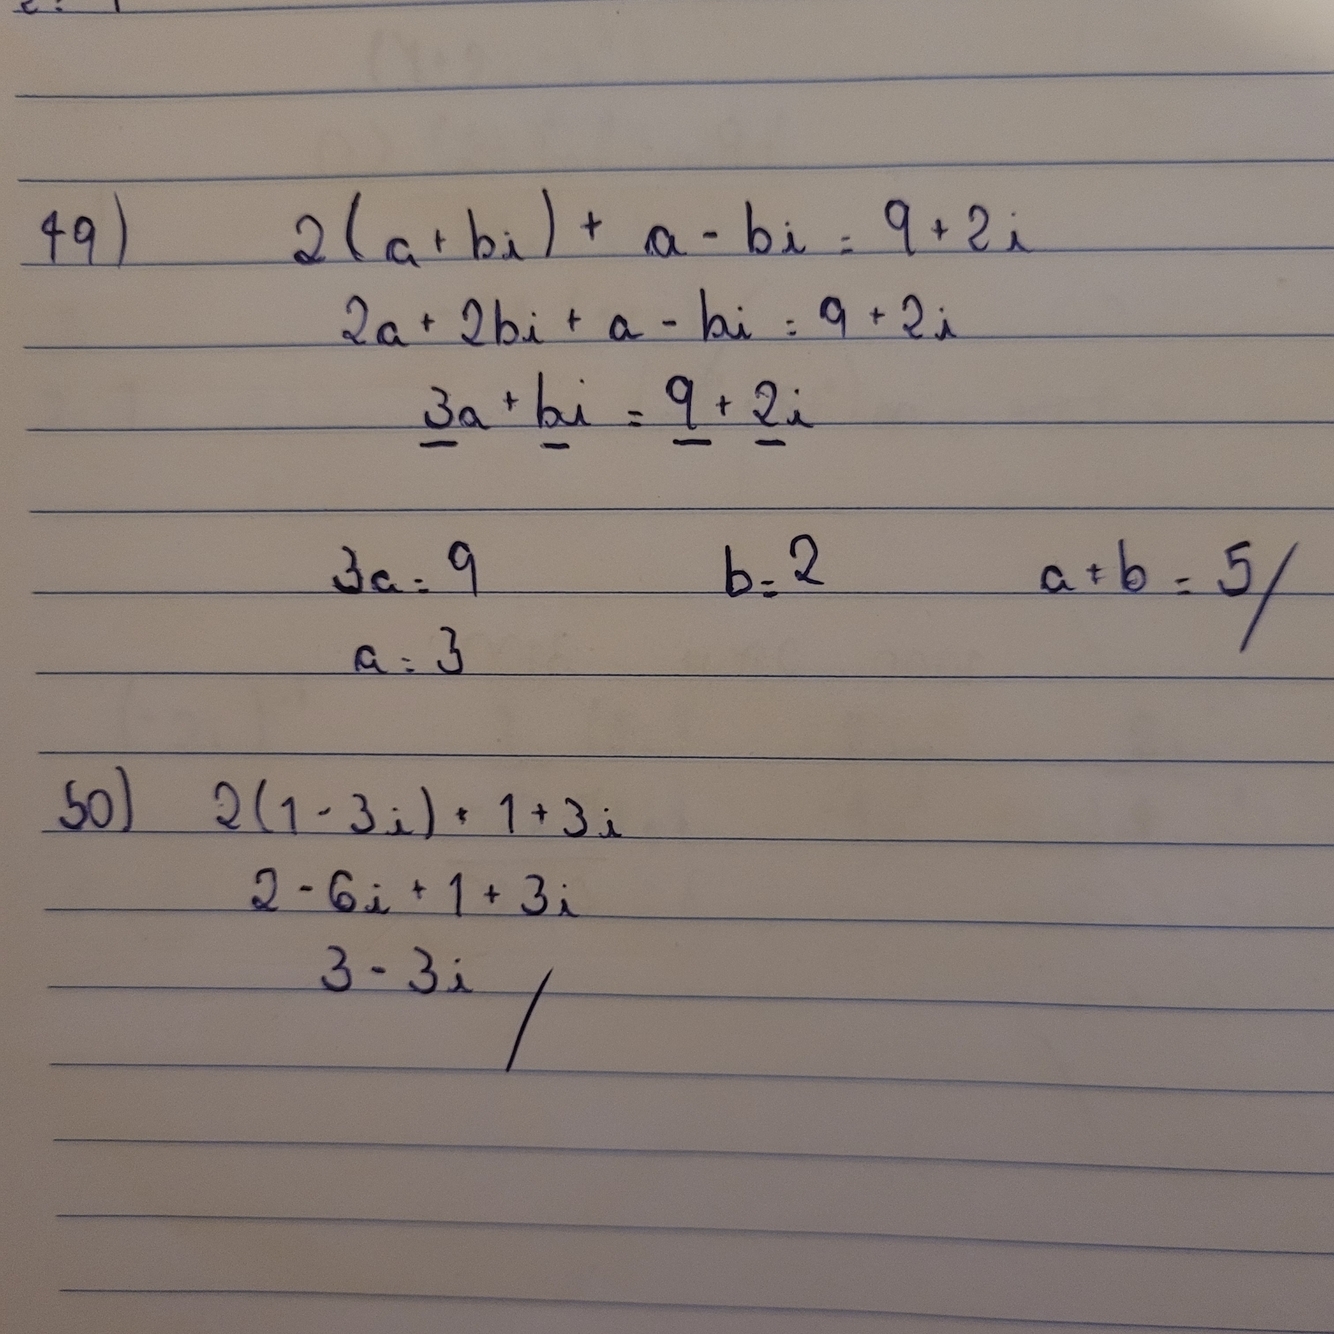 49) 2(a+bi) + a - bi = 9 + 2i
2a + 2bi + a - bi = 9 + 2i
3a + bi = 9 + 2i
3a = 9 b = 2 a + b = 5/
a = 3
50) 2(1 - 3i) + 1 + 3i
2 - 6i + 1 + 3i
3 - 3i /